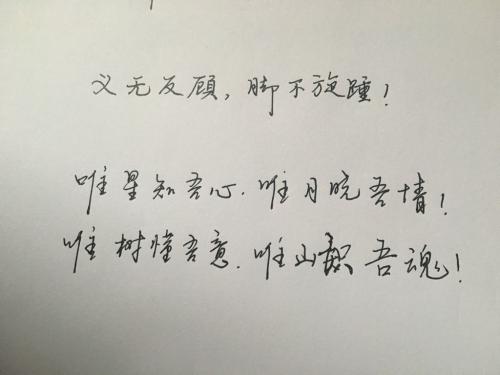 义无反顾，脚不旋踵！
唯星知吾心．唯月晓吾情！
唯树懂吾意．唯山识吾魂！